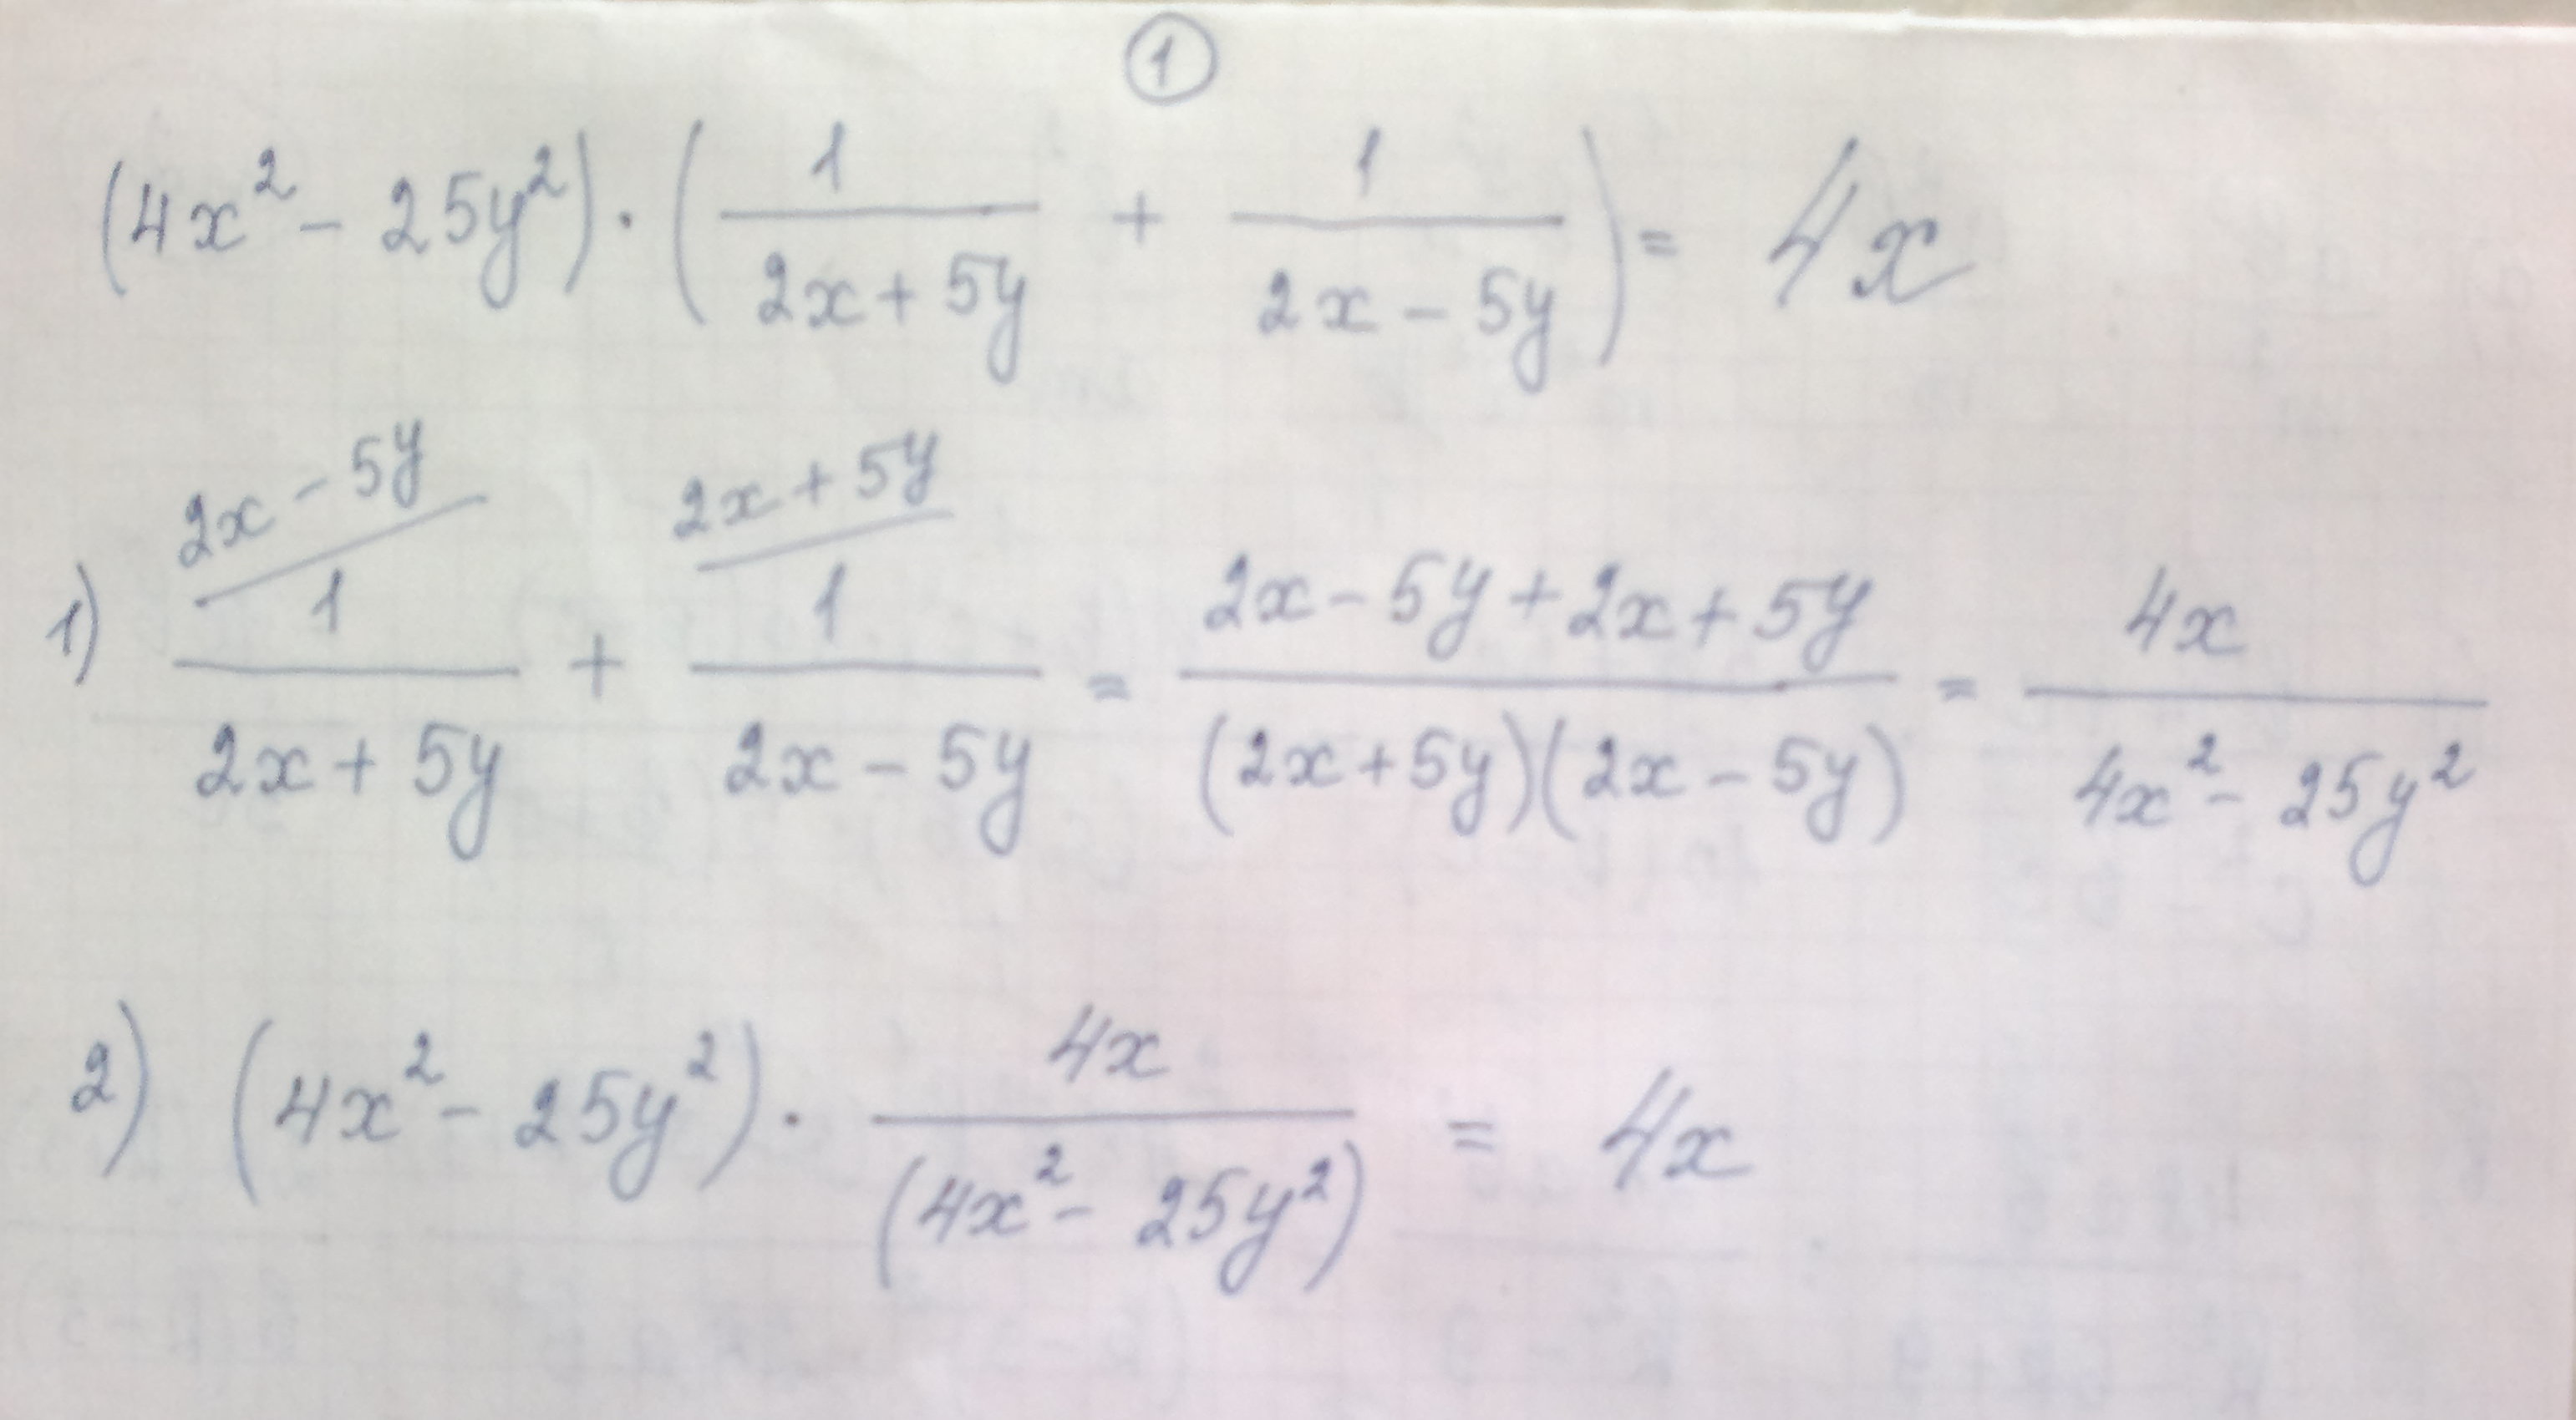 1
(4x² - 25y²) · (1/(2x + 5y) + 1/(2x - 5y)) = 4x
1) (2x - 5y / 1)/(2x + 5y) + (2x + 5y / 1)/(2x - 5y) = (2x - 5y + 2x + 5y)/((2x + 5y)(2x - 5y)) = 4x/(4x² - 25y²)
2) (4x² - 25y²) · 4x/((4x² - 25y²)) = 4x